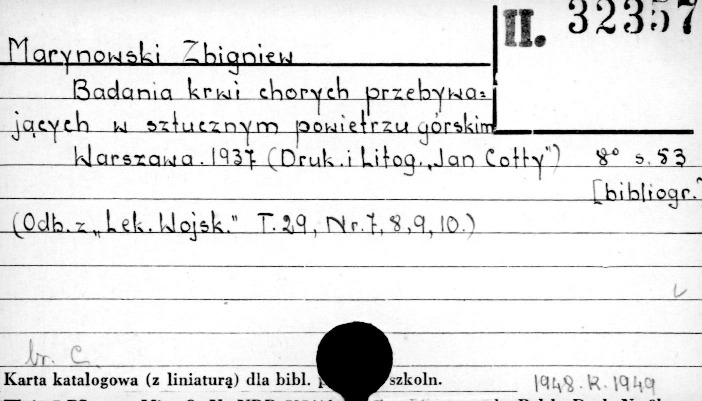 II. 32357
Marynowski Zbigniew
Badania krwi chorych przebywa=
jących w sztucznym powietrzu górskim
Warszawa. 1937 (Druk. i Litog. „Jan Cotty") 8° s. 53
[bibliogr.]
(Odb. z „Lek. Wojsk." T. 29, Nr. 7, 8, 9, 10.)
br. C.
Karta katalogowa (z liniaturą) dla bibl. szkoln.
1948. R. 1949